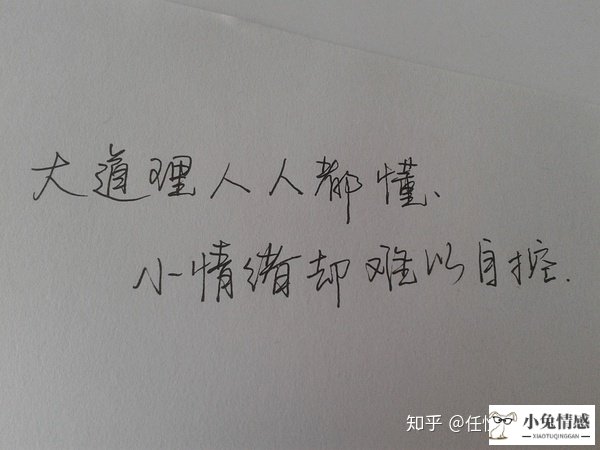 大道理人人都懂、
小情绪却难以自控.
知乎 @任
小兔情感
XIAOTUQINGGAN